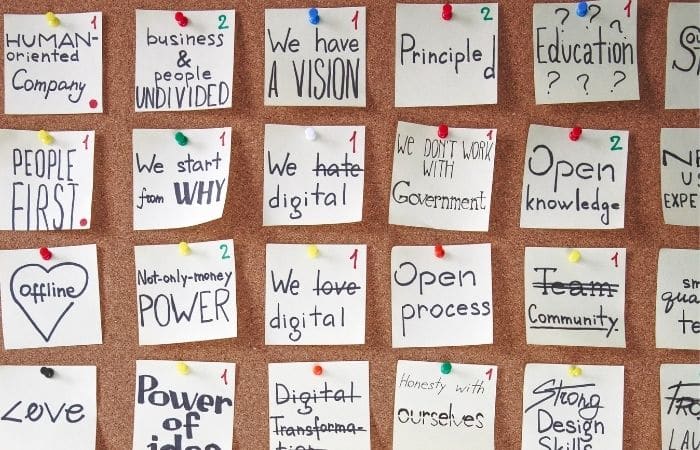 HUMAN-
oriented
Company
2
business
&
people
UNDIVIDED
1
We have
A VISION
2
Principled
1
? ? ?
Education
? ? ?
1
PEOPLE
FIRST
1
We start
from WHY
1
We hate
digital
1
We DON'T WORK
WITH
Government
2
Open
knowledge
offline
2
Not-only-money
POWER
1
We love
digital
Open
process
1
Team
Community
Love
1
Power
of
Digital
Transforma-
1
Honesty with
ourselves
Strong
Design
Skills